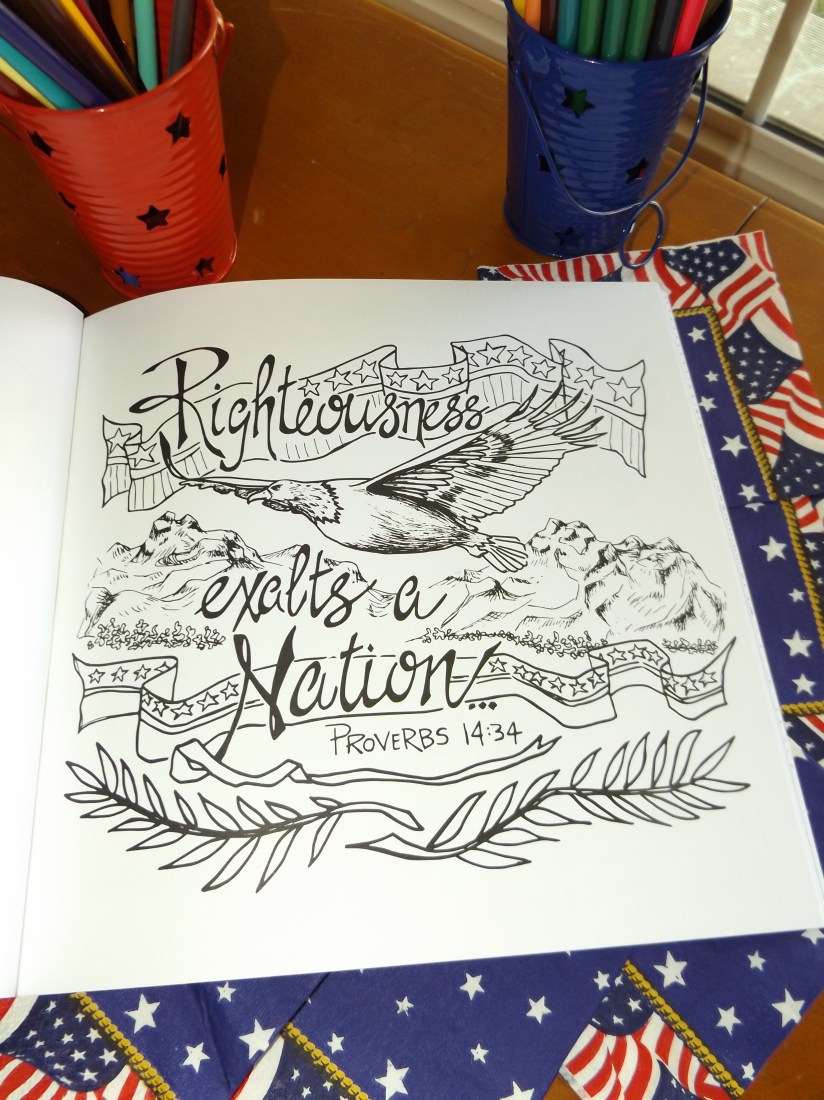 Righteousness
exalts a
Nation...
PROVERBS 14:34